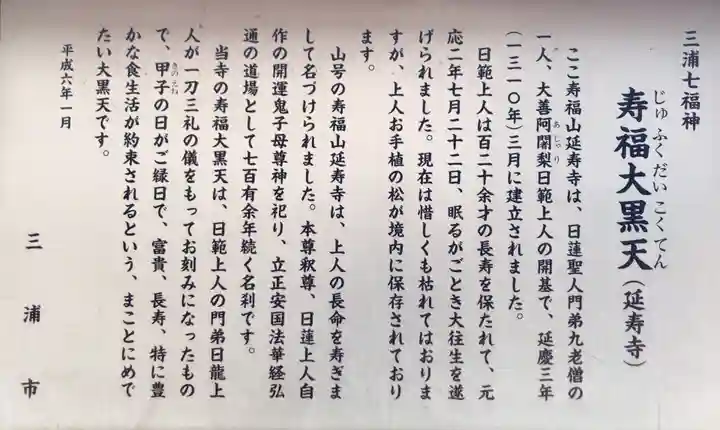 三浦七福神
じゅ ふく だい こく てん
寿福大黒天(延寿寺)
ここ寿福山延寿寺は、日蓮聖人門弟九老僧の
一人、大善阿闍梨日範上人の開基で、延慶三年
あ じゃ り
(一三一〇年)三月に建立されました。
日範上人は百二十余才の長寿を保たれて、元
応二年七月二十二日、眠るがごとき大往生を遂
げられました。現在は惜しくも枯れてはおりま
すが、上人お手植の松が境内に保存されており
ます。
山号の寿福山延寿寺は、上人の長命を寿ぎま
して名づけられました。本尊釈尊、日蓮上人自
作の開運鬼子母尊神を祀り、立正安国法華経弘
通の道場として七百有余年続く名刹です。
当寺の寿福大黒天は、日範上人の門弟日龍上
人が一刀三礼の儀をもってお刻みになったもの
で、甲子の日がご縁日で、富貴、長寿、特に豊
きの え ね
かな食生活が約束されるという、まことにめで
たい大黒天です。
平成六年一月
三浦市